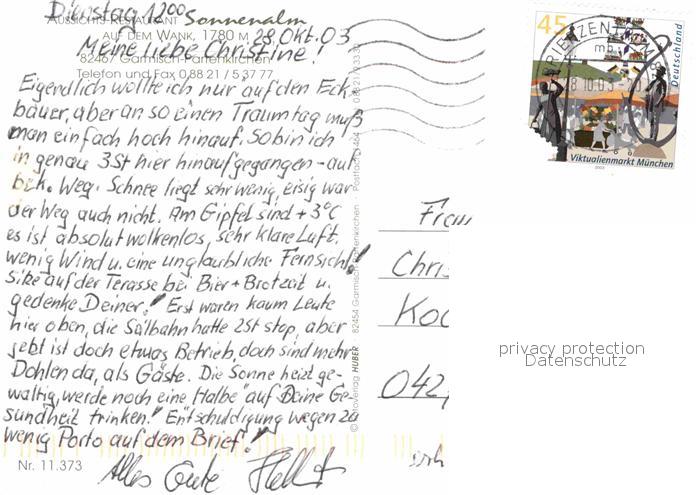 Dienstag 12⁰⁰
Aussichts-Restaurant Sonnenalm
auf dem Wank, 1780 m 28. Okt. 03
Meine liebe Christine!
82467 Garmisch-Partenkirchen
Telefon und Fax 0 88 21 / 5 37 77
Eigendlich wollte ich nur auf den Eck
bauer, aber an so einen Traumtag muß
man einfach hoch hinauf. So bin ich
in genau 3 St hier hinaufgegangen - auf
bek. Weg. Schnee liegt sehr wenig, eisig war
der Weg auch nicht. Am Gipfel sind +3°C
es ist absolut wolkenlos, sehr klare Luft,
wenig Wind u. eine unglaubliche Fernsicht!
Sitze auf der Terasse bei Bier + Brotzeit u.
gedenke Deiner! Erst waren kaum Leute
hier oben, die Seilbahn hatte 2St stop, aber
jetzt ist doch etwas Betrieb, doch sind mehr
Dohlen da, als Gäste. Die Sonne heizt ge-
waltig, werde noch eine "Halbe" auf Deine Ge-
sundheit trinken! Entschuldigung wegen zu
wenig Porto auf dem Brief!
Nr. 11.373
Alles Gute
© Fotoverlag HUBER 82454 Garmisch-Partenkirchen · Postfach
45
Deutschland
BRIEFZENTRUM
28.10.03
Viktualienmarkt München
Chris
Koc
042
privacy protection
Datenschutz